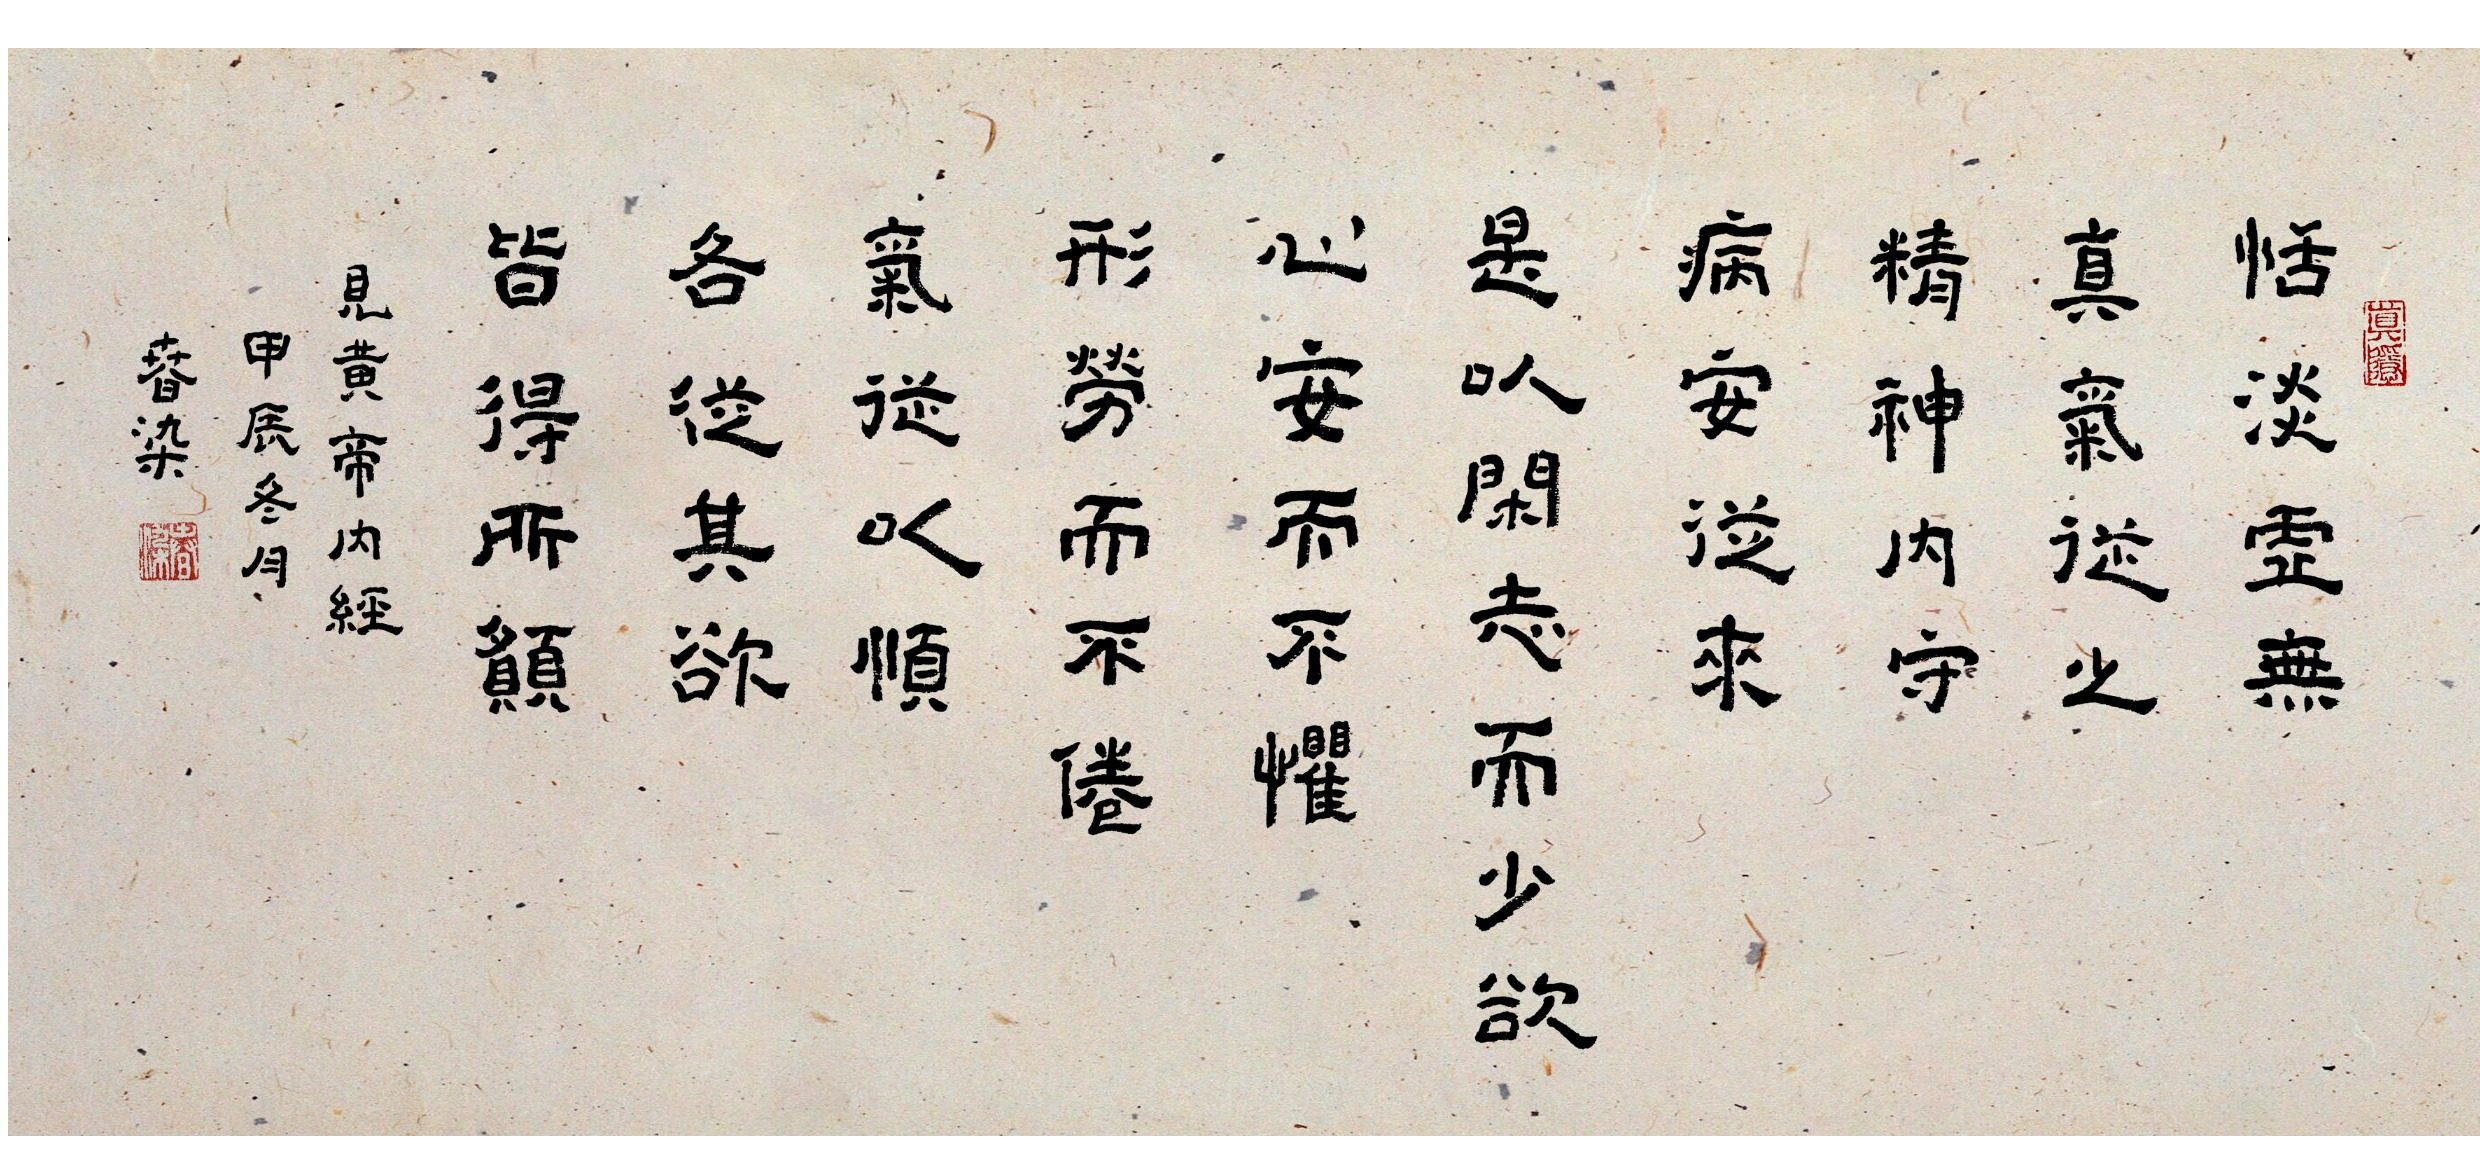 恬淡虛無
真氣從之
精神內守
病安從來
是以閑志而少欲
心安而不懼
形勞而不倦
氣從以順
各從其欲
皆得所願
見黃帝內經
甲辰冬月
春染